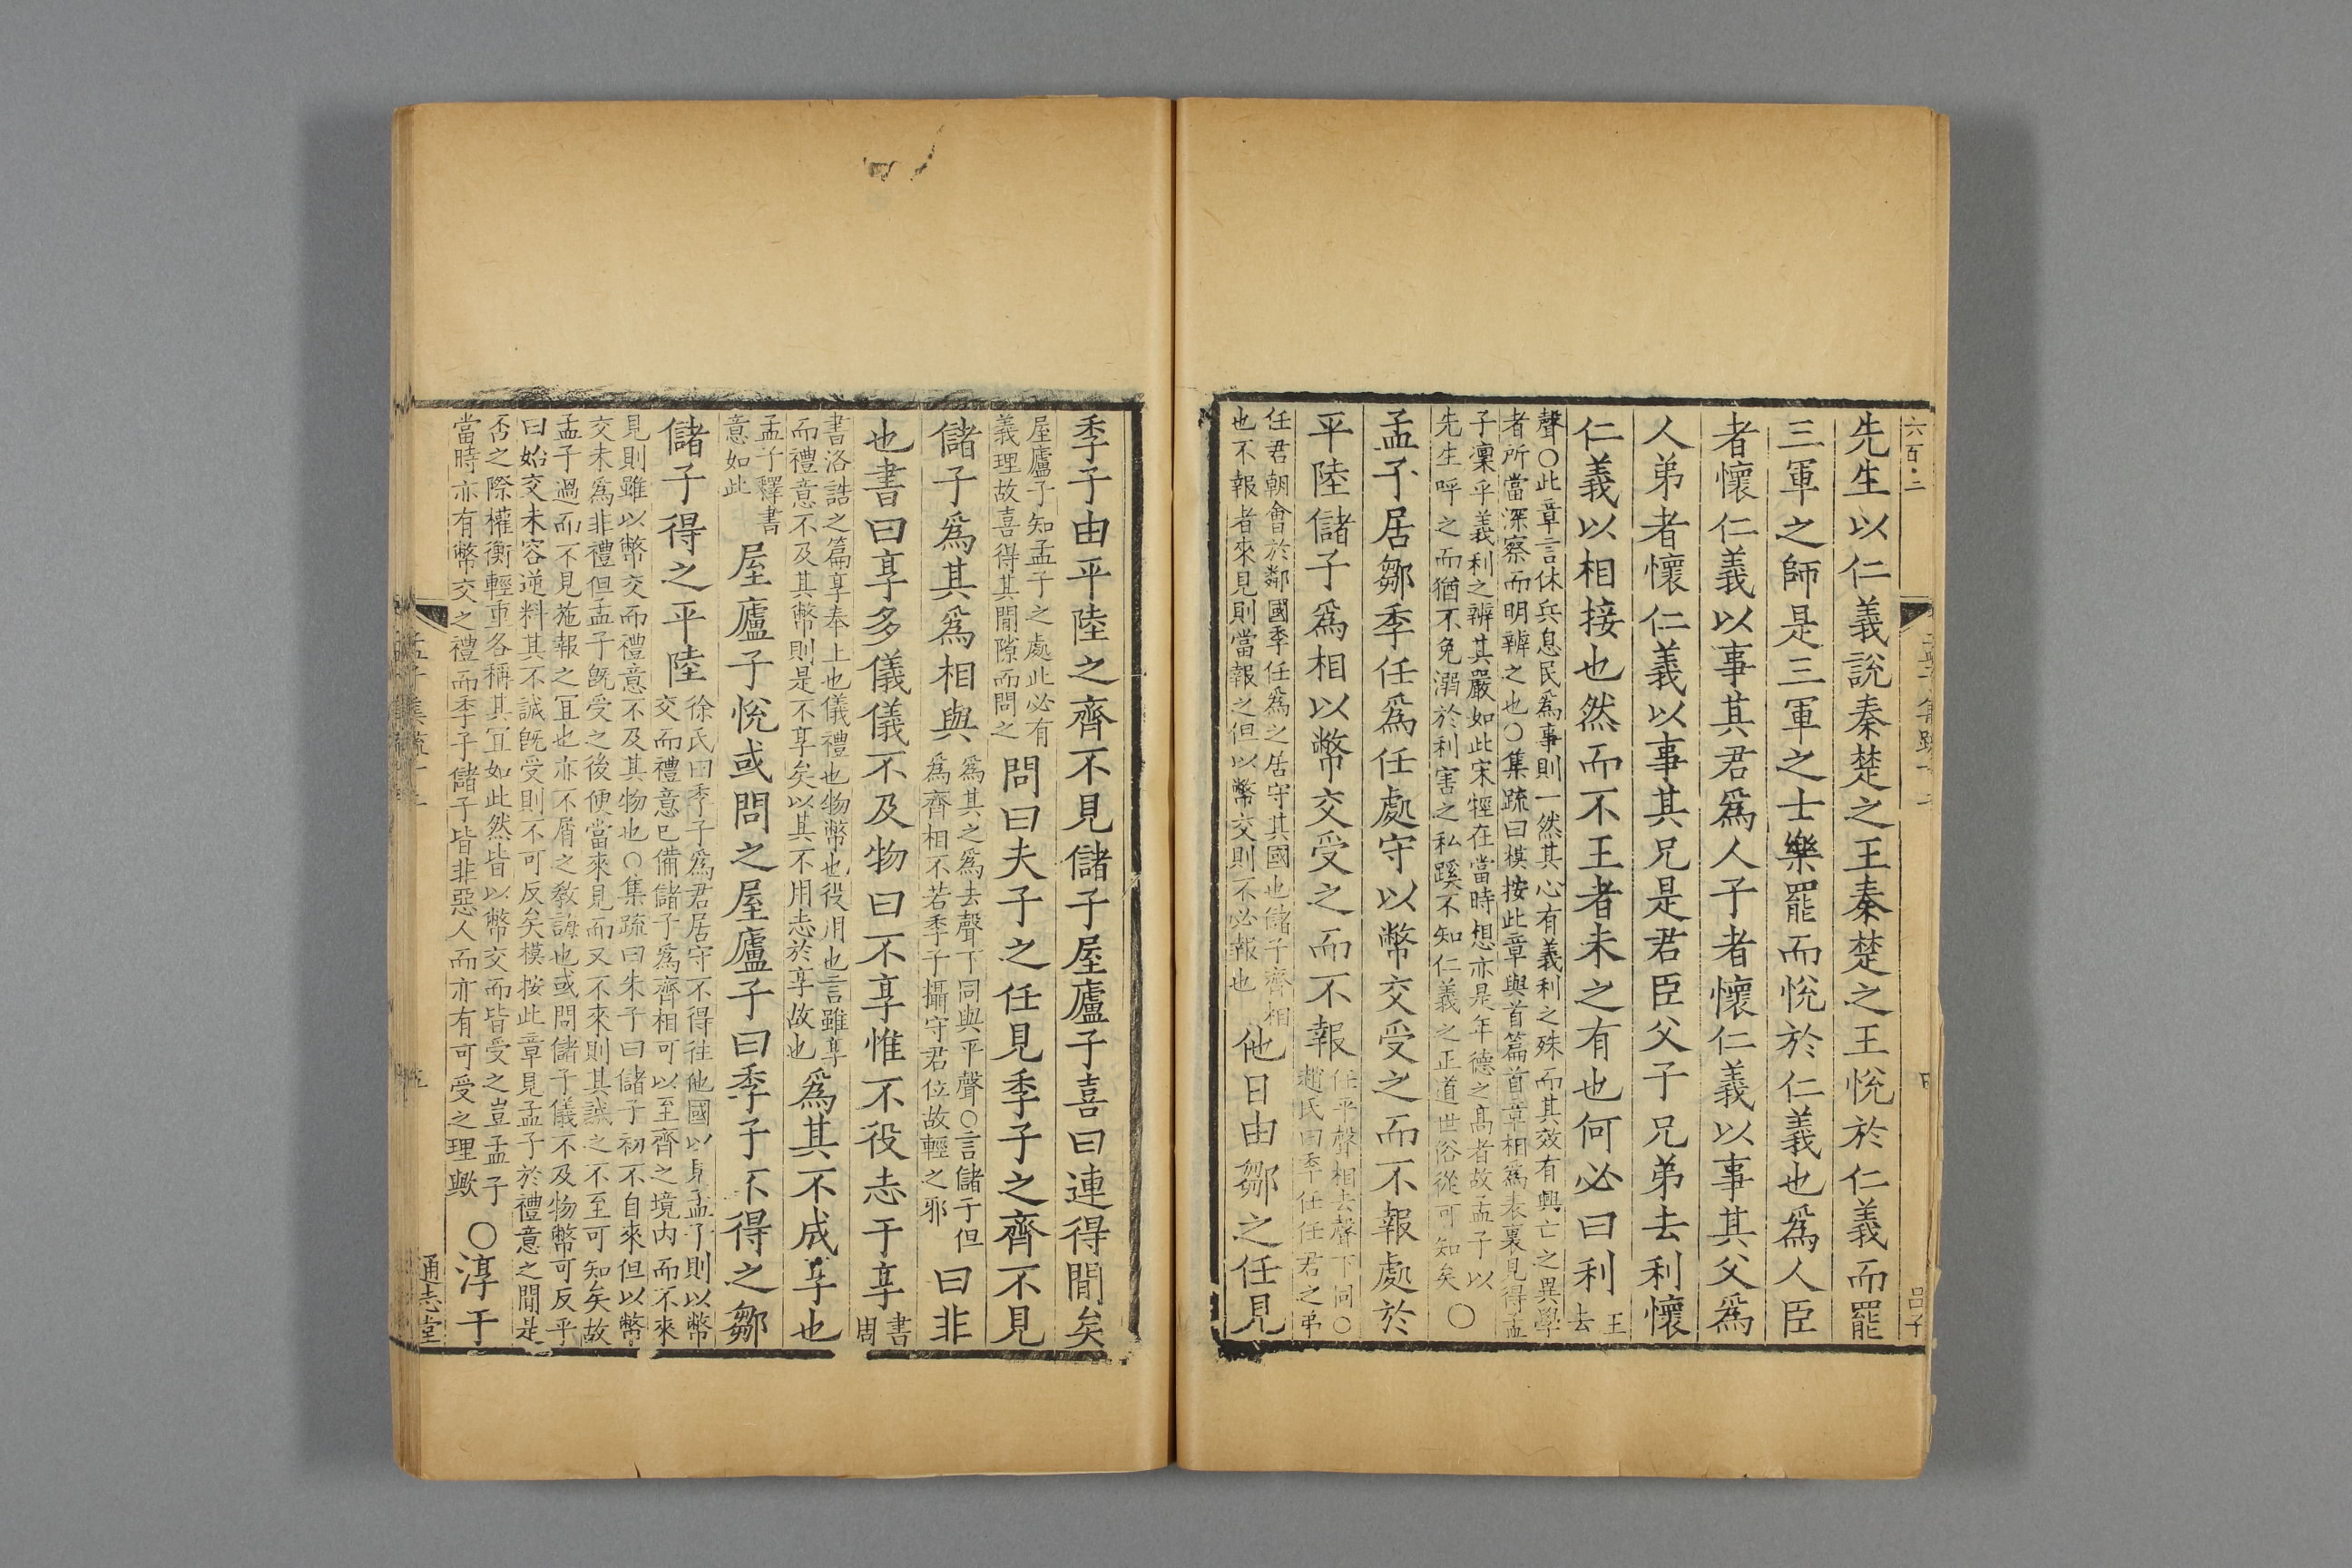 六百二
孟子集疏十
吕子
先生以仁義說秦楚之王秦楚之王悅於仁義而罷
三軍之師是三軍之士樂罷而悅於仁義也爲人臣
者懷仁義以事其君爲人子者懷仁義以事其父爲
人弟者懷仁義以事其兄是君臣父子兄弟去利懷
仁義以相接也然而不王者未之有也何必曰利王去
聲○此章言休兵息民爲事則一然其心有義利之殊而其效有興亡之異學
者所當深察而明辨之也○集疏曰模按此章與首篇首章相爲表裏見得孟
子凜乎義利之辨其嚴如此宋牼在當時想亦是年德之高者故孟子以
先生呼之而猶不免溺於利害之私蹊不知仁義之正道世俗從可知矣○
孟子居鄒季任爲任處守以幣交受之而不報處於
平陸儲子爲相以幣交受之而不報任平聲相去聲下同○
趙氏曰季任任君之弟
任君朝會於鄰國季任爲之居守其國也儲子齊相
也不報者來見則當報之但以幣交則不必報也
他日由鄒之任見
季子由平陸之齊不見儲子屋廬子喜曰連得閒矣
屋廬子知孟子之處此必有
義理故喜得其閒隙而問之
問曰夫子之任見季子之齊不見
儲子爲其爲相與爲其之爲去聲下同與平聲○言儲子但
爲齊相不若季子攝守君位故輕之邪
曰非
也書曰享多儀儀不及物曰不享惟不役志于享書周
書洛誥之篇享奉上也儀禮也物幣也役用也言雖享
而禮意不及其幣則是不享矣以其不用志於享故也
爲其不成享也
孟子釋書
意如此
屋廬子悅或問之屋廬子曰季子不得之鄒
儲子得之平陸徐氏曰季子爲君居守不得往他國以見孟子則以幣
交而禮意已備儲子爲齊相可以至齊之境內而不來
見則雖以幣交而禮意不及其物也○集疏曰朱子曰儲子初不自來但以幣
交未爲非禮但孟子既受之後便當來見而又不來則其誠之不至可知矣故
孟子過而不見施報之宜也亦不屑之教誨也或問儲子儀不及物幣可反乎
曰始交未容逆料其不誠既受則不可反矣模按此章見孟子於禮意之閒是
否之際權衡輕重各稱其宜如此然皆以幣交而皆受之豈孟子
當時亦有幣交之禮而季子儲子皆非惡人而亦有可受之理歟
○淳于
孟子集疏十二
通志堂